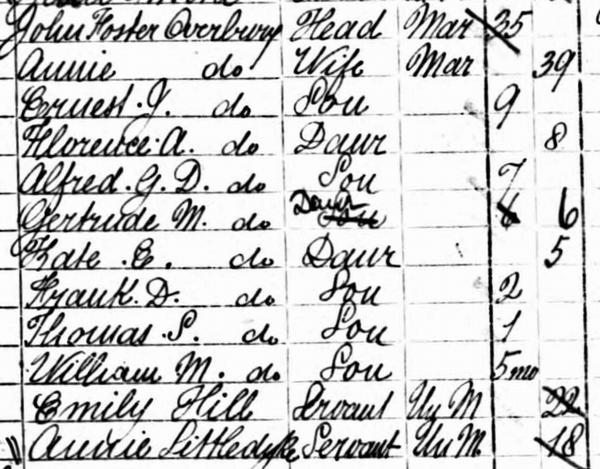 John Foster Overbury Head Mar 35
Annie do Wife Mar 39
Ernest. J. do Son 9
Florence. A. do Daur 8
Alfred. G. D. do Son 7
Gertrude M. do Daur Son 6 6
Kate. E. do Daur 5
Frank. D. do Son 2
Thomas. S. do Son 1
William M. do Son 5mo
Emily Hill Servant Un M 22
Annie Littledyke Servant Un M 18